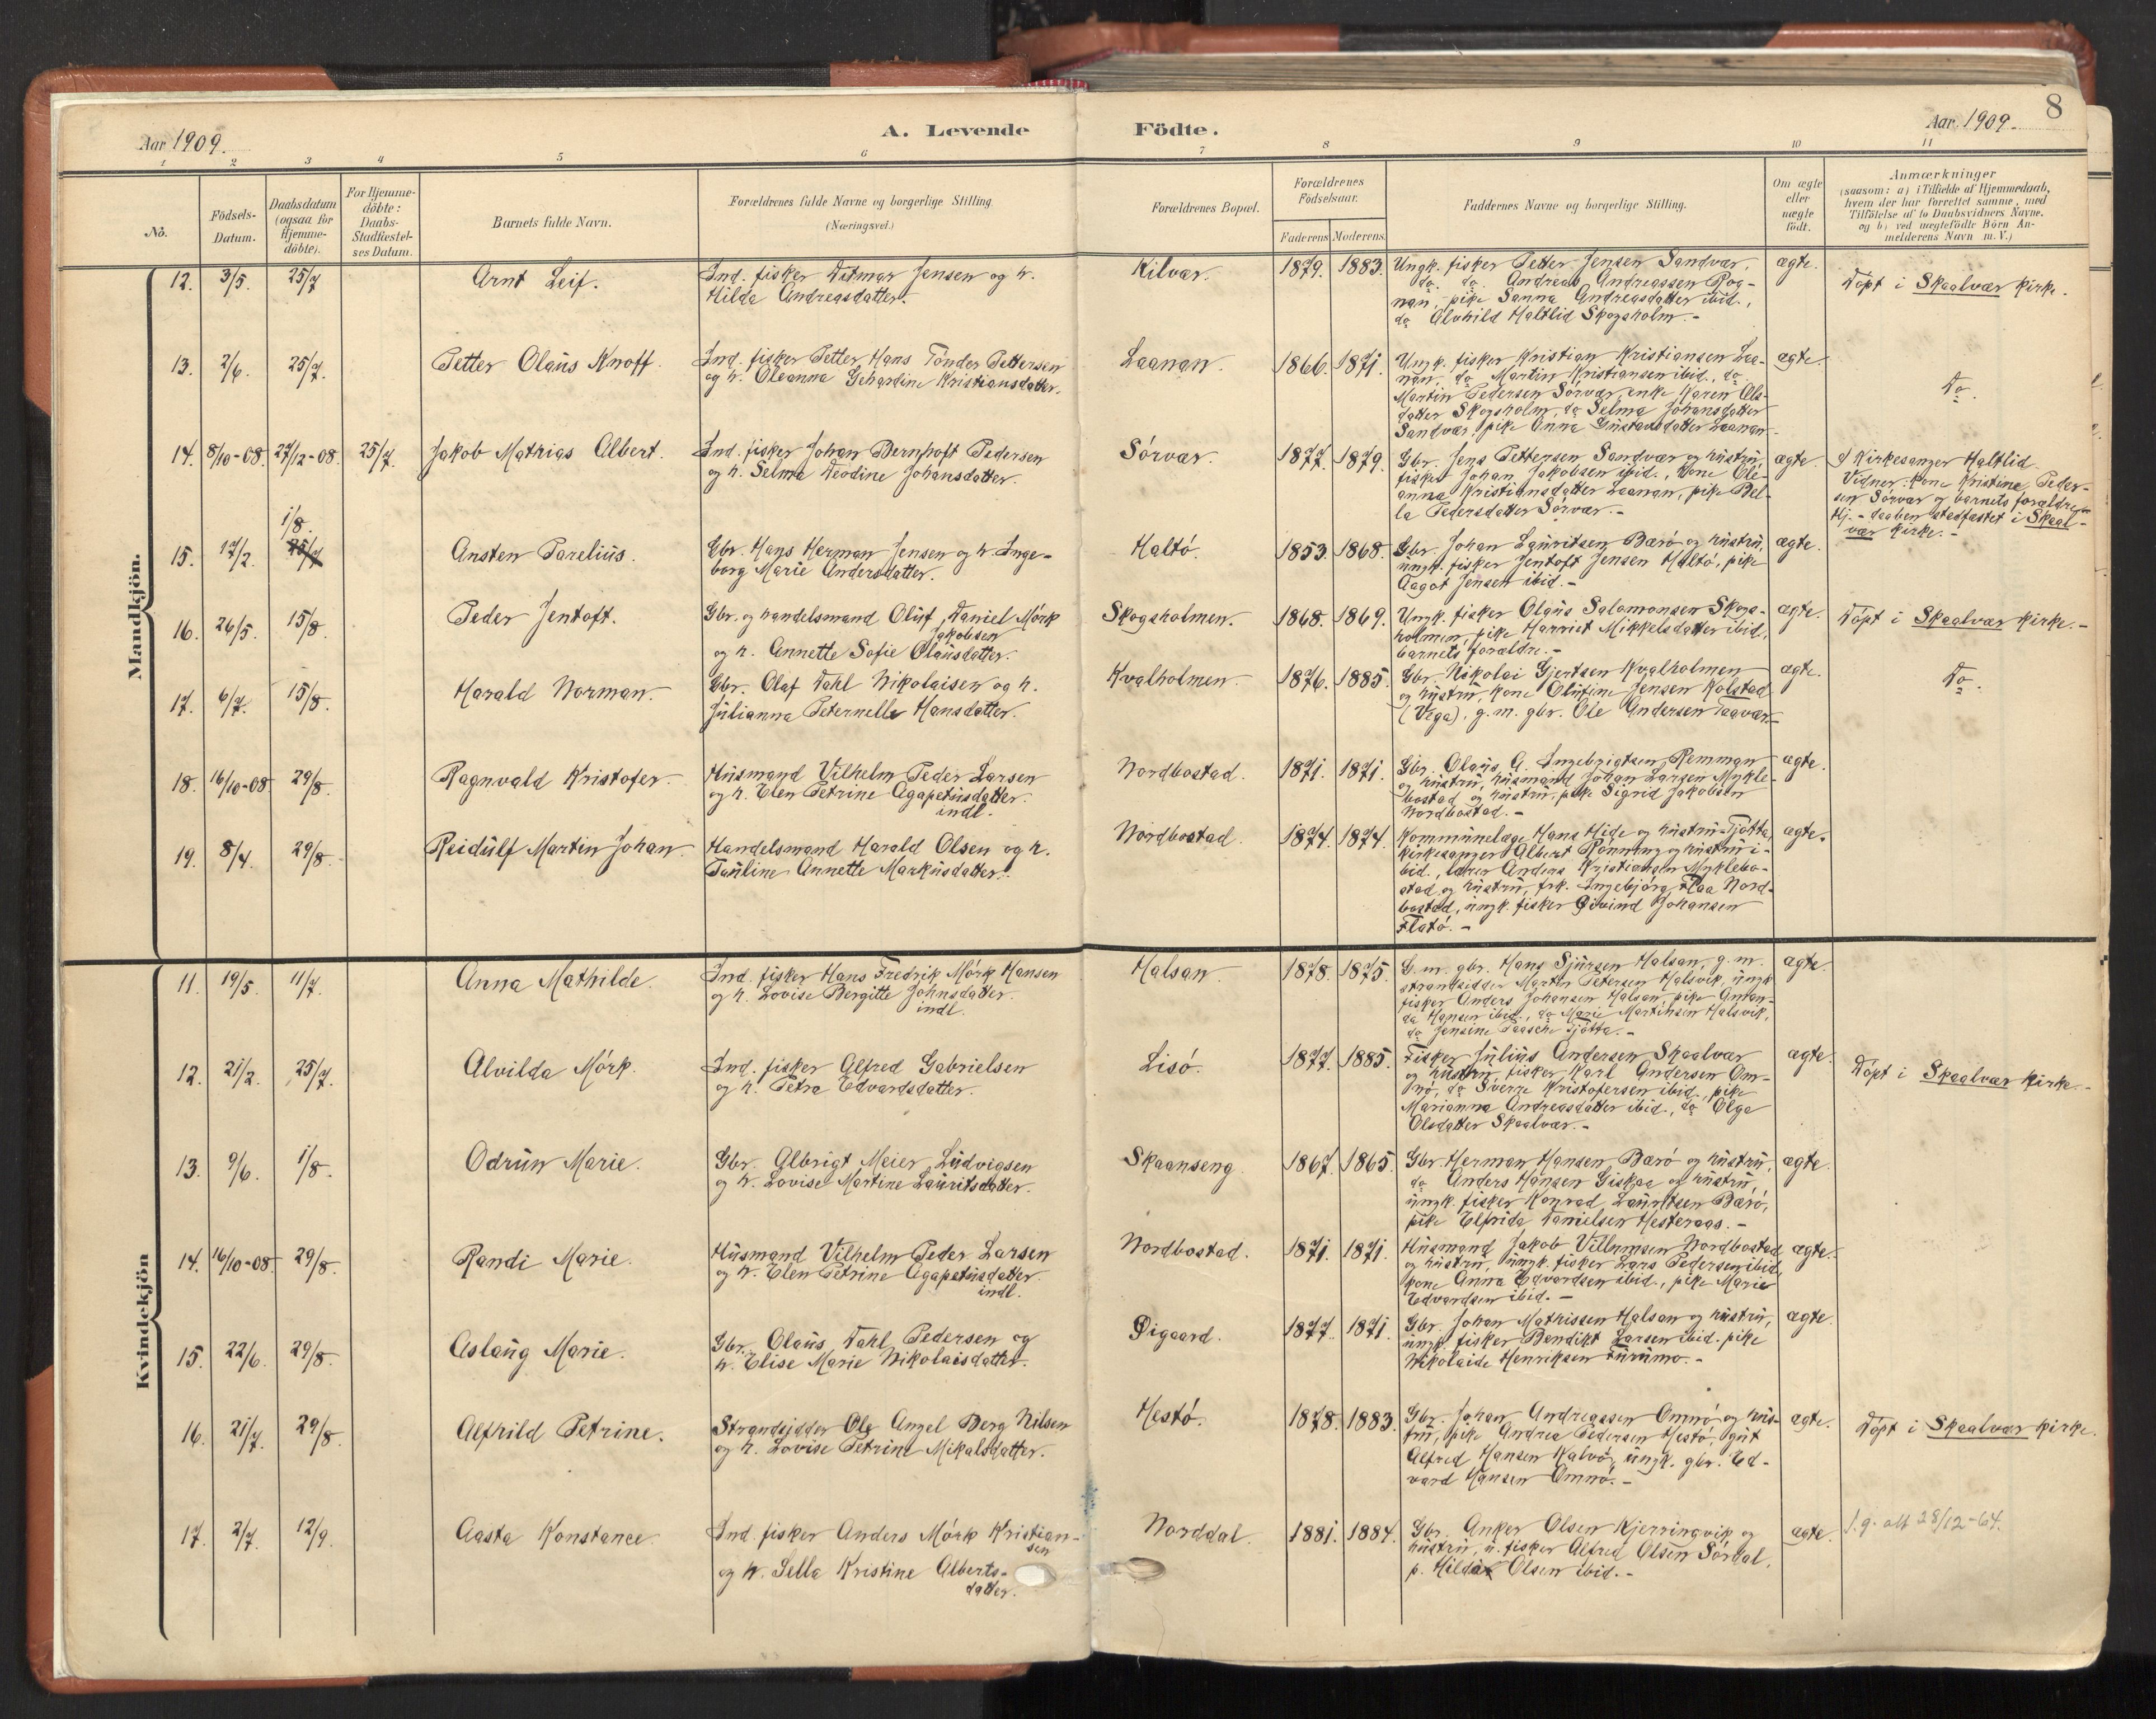 8
Aar 1909.
A. Levende Födte.
Aar 1909.
1 2 3 4 5 6 7 8 9 10 11
No.
Födsels-
Datum.
Daabsdatum
(ogsaa for
Hjemme-
döbte).
For Hjemme-
döbte:
Daabs-
Stadfæstel-
ses Datum.
Barnets fulde Navn.
Forældrenes fulde Navne og borgerlige Stilling
(Næringsvei.)
Forældrenes Bopæl.
Forældrenes
Födselsaar.
Faderens Moderens.
Faddernes Navne og borgerlige Stilling.
Om ægte
eller
uægte
födt.
Anmærkninger
(saasom: a) i Tilfælde af Hjemmedaab,
hvem der har forrettet samme, med
Tilföielse af to Daabsvidners Navne.
og b) ved uægtefödte Börn An-
melderens Navn m. V.)
Mandkjön.
12. 3/5. 25/7 Arnt Leif.
Ind. fisker Ditmar Jensen og h.
Hilda Andreasdatter.
Kilvær. 1879. 1883.
Ungk. fisker Petter Jensen Sandvær,
do. do. Andreas Andreassen Rog-
nan, pike Sanna Andreasdatter ibid.,
do Alvhild Haltlid Skogsholm.-
ægte.
Döpt i Skaalvær kirke.
13. 2/6. 25/7. Petter Olaus Knoff.
Ind. fisker Petter Hans Tönder Pettersen
og h. Oleanna Gehardine Kristiansdatter.
Laanan. 1866. 1871.
Ungk. fisker Kristian Kristiansen Laa-
nan, do Martin Kristiansen ibid., do
Martin Pedersen Sörvær, enke Karen Ols-
datter Skogsholm, do Selma Johansdatter
Sandvær, pike Anna Gustavsdatter Laanan.
ægte.
Do.
14. 8/10-08. 27/12-08. 25/7. Jakob Mathias Albert.
Ind. fisker Johan Bernhoft Pedersen
og h. Selma Deodine Johansdatter.
Sörvær. 1877. 1879.
Gbr. Jens Pettersen Sandvær og hustru,
fisker Johan Jakobsen ibid., kone Ole-
anna Kristiansdatter Laanan, pike Bel-
la Pedersdatter Sörvær.-
ægte.
a) Kirkesanger Haltlid.
Vidner: kone Kristine Peder-
sen Sörvær og barnets forældre.
Hj.-daaben stadfæstet i Skaal-
vær kirke.-
15. 17/2. 1/8. 25/7 Ansten Parelius.
Gbr. Hans Herman Jensen og h. Inge-
borg Marie Andersdatter.
Haltö. 1853. 1868.
Gbr. Johan Lauritsen Bærö og hustru,
ungk. fisker Jentoft Jensen Haltö, pike
Aagot Jensen ibid.-
ægte.
16. 26/5. 15/8. Peder Jentoft.
Gbr. og handelsmand Oluf Daniel Mörk
Jakobsen
og h. Annette Sofie Olausdatter.
Skogsholmen. 1868. 1869.
Ungk. fisker Olaus Salomonsen Skogs-
holmen, pike Harriet Mikkelsdatter ibid.,
barnets forældre.-
ægte.
Döpt i Skaalvær kirke.-
17. 6/7. 15/8. Harald Norman.
Gbr. Olaf Dahl Nikolaisen og h.
Julianna Peternelle Hansdatter.
Kvalholmen. 1876. 1885.
Gbr. Nikolai Gjertsen Kvalholmen
og hustru, kone Olufine Jensen Kolstad
(Vega), g.m. gbr. Ole Andersen Tagvær.-
ægte.
Do.
18. 16/10-08. 29/8. Ragnvald Kristofer.
Husmand Vilhelm Peder Larsen
og h. Elen Petrine Agapetusdatter.
indl.
Nordbostad. 1871. 1871.
Gbr. Olaus A. Ingebrigtsen Remman
og hustru, husmand Johan Larsen Mykle-
bostad og hustru, pike Sigrid Jakobsen
Nordbostad.-
ægte.
19. 8/4. 29/8. Reidulf Martin Johan.
Handelsmand Harald Olsen og h.
Pauline Annette Markusdatter.
Nordbostad. 1874. 1874.
Kommunelæge Hans Hide og hustru Tjötta,
kirkesanger Albert Rönning og hustru i-
bid., lærer Anders Kristiansen Myklebo-
stad og hustru, frk. Ingebjörg Flaa Nord-
bostad, ungk. fisker Øivind Johansen
Flatö.-
ægte.
Kvindekjön
11. 19/5. 11/7. Anna Mathilde.
Ind. fisker Hans Fredrik Mörk Hansen
og h. Lovise Bergitte Johnsdatter.
indl.
Halsan. 1878. 1875.
G.m. gbr. Hans Sjursen Halsan, g.m.
strandsidder Martin Petersen Halsvik, ungk.
fisker Anders Johansen Halsan, pike Aman-
da Hansen ibid., do Marie Martinsen Halsvik,
do Jensine Paasche Tjötta.-
ægte.
12. 21/2. 25/7. Alvilda Mörk.
Ind. fisker Alfred Gabrielsen
og h. Petra Edvardsdatter.
Lisö. 1877. 1885.
Fisker Julius Andersen Skaalvær
og hustru, fisker Karl Andersen Om-
nö, do Sverre Kristofersen ibid., pike
Marianna Andreasdatter ibid., do Olga
Olsdatter Skaalvær.-
ægte.
Döpt i Skaalvær kirke.-
13. 9/6. 1/8. Odrun Marie.
Gbr. Albrigt Meier Ludvigsen
og h. Lovise Martine Lauritsdatter.
Skaanseng. 1867. 1865.
Gbr. Herman Hansen Bærö og hustru,
do Anders Hansen Giskaa og hustru,
ungk. fisker Konrad Lauritsen Bærö,
pike Elfrida Danielsen Hesteraas.-
ægte.
14. 16/10-08. 29/8. Randi Marie.
Husmand Vilhelm Peder Larsen
og h. Elen Petrine Agapetusdatter.
indl.
Nordbostad. 1871. 1871.
Husmand Jakob Villumsen Nordbostad
og hustru, ungk. fisker Lars Pedersen ibid.,
kone Anna Edvardsen ibid., pike Marie
Edvardsen ibid.-
ægte.
15. 22/6. 29/8. Aslaug Marie.
Gbr. Olaus Dahl Pedersen og
h. Elise Marie Nikolaisdatter.
Øigaard. 1877. 1871.
Gbr. Johan Mathissen Halsan og hustru,
ungk. fisker Bendikt Larsen ibid. pike
Nikolaide Henriksen Furumo.-
ægte.
16. 21/7. 29/8. Alfhild Petrine.
Strandsidder Ole Angel Berg Nilsen
og h. Lovise Petrine Mikalsdatter.
Hestö. 1878. 1883.
Gbr. Johan Andreassen Omnö og hus-
tru, pike Andrea Pedersen Hestö, gut
Alfred Hansen Kalvö, ungk. gbr. Ed-
vard Hansen Omnö.-
ægte.
Döpt i Skaalvær kirke.
17. 2/7. 12/9. Aasta Konstance.
Ind. fisker Anders Mörk Kristian-
sen
og h. Sella Kristine Alberts-
datter.
Norddal. 1881. 1884.
Gbr. Anker Olsen Kjerringvik og
hustru, u. fisker Alfred Olsen Sördal,
p. Hilda Olsen ibid.-
ægte.
f.g. att 28/12-64.